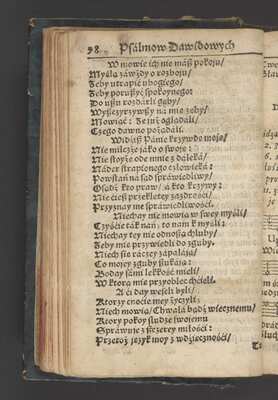 98. Psalmow Dawidowych
W mowie ich nie mász pokoju/
Myślą záwżdy o rozboju/
Żeby utrapić ubogiego/
Żeby poruszyć spokojnego:
Do uszu rozdárli gęby/
Wyszczyrzywszy na mię zęby/
Mowiąc: Że tuż oglądáli/
Czego dawno pożądáli.
Widzisz Pánie krzywdę moję/
Nie milczże jáko o swoję:
Nie stoyże ode mnie z dáleká/
Náder strapionego człowieká:
Powstań ná sąd spráwiedliwy/
Osądź kto praw/ á kto krzywy:
Nie cierp przeklętey zazdrości/
Przyznay mi spráwiedliwości.
Niechay nie mowią w swey myśli/
Czyńcie ták náń: to nam k myśli:
Niechay tey nie odnoszą chluby/
Żeby mię przywiedli do zguby.
Niech się ráczey zápaláją/
Co mojey zguby szukáją:
Boday sámi lekkość mieli/
W ktorą mię przyoblec chcieli.
A ci day weseli byli/
Ktorzy cnocie mey życzyli:
Niech mowią/ Chwałá bądź wiecznemu/
Ktory pokoy słudze swojemu
Spráwuje z szczerey miłości:
Przetoż język moy z wdzięcznością/